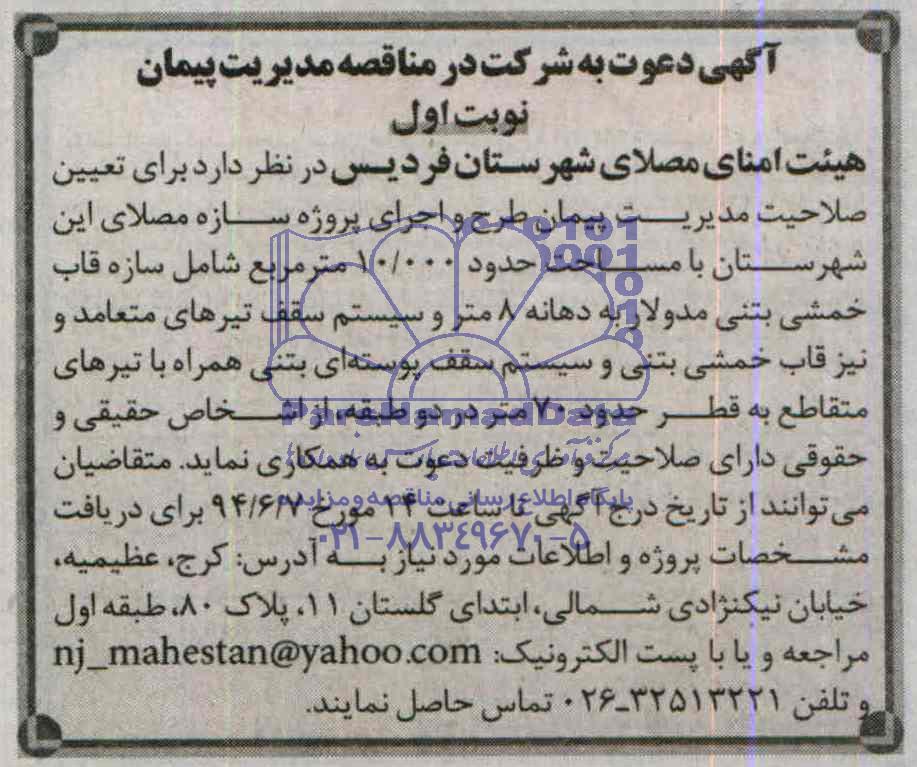 آگهی دعوت به شرکت در مناقصه مدیریت پیمان
نوبت اول
هیئت امنای مصلای شهرستان فردیس در نظر دارد برای تعیین
صلاحیت مدیریت پیمان طرح و اجرای پروژه سازه مصلای این
شهرستان با مساحت حدود ۱۰/۰۰۰ مترمربع شامل سازه قاب
خمشی بتنی مدولار به دهانه ۸ متر و سیستم سقف تیرهای متعامد و
نیز قاب خمشی بتنی و سیستم سقف پوسته‌ای بتنی همراه با تیرهای
متقاطع به قطر حدود ۷۰ متر در دو طبقه، از اشخاص حقیقی و
حقوقی دارای صلاحیت و ظرفیت دعوت به همکاری نماید. متقاضیان
می‌توانند از تاریخ درج آگهی تا ساعت ۱۴ مورخ ۹۴/۶/۷ برای دریافت
مشخصات پروژه و اطلاعات مورد نیاز به آدرس: کرج، عظیمیه،
خیابان نیکنژادی شمالی، ابتدای گلستان ۱۱، پلاک ۸۰، طبقه اول
مراجعه و یا با پست الکترونیک: nj_mahestan@yahoo.com
و تلفن ۳۲۵۱۳۲۲۱-۰۲۶ تماس حاصل نمایند.
ParsNamadData
پایگاه اطلاع رسانی مناقصه و مزایده
۰۲۱-۸۸۳۴۹۶۷۰-۵